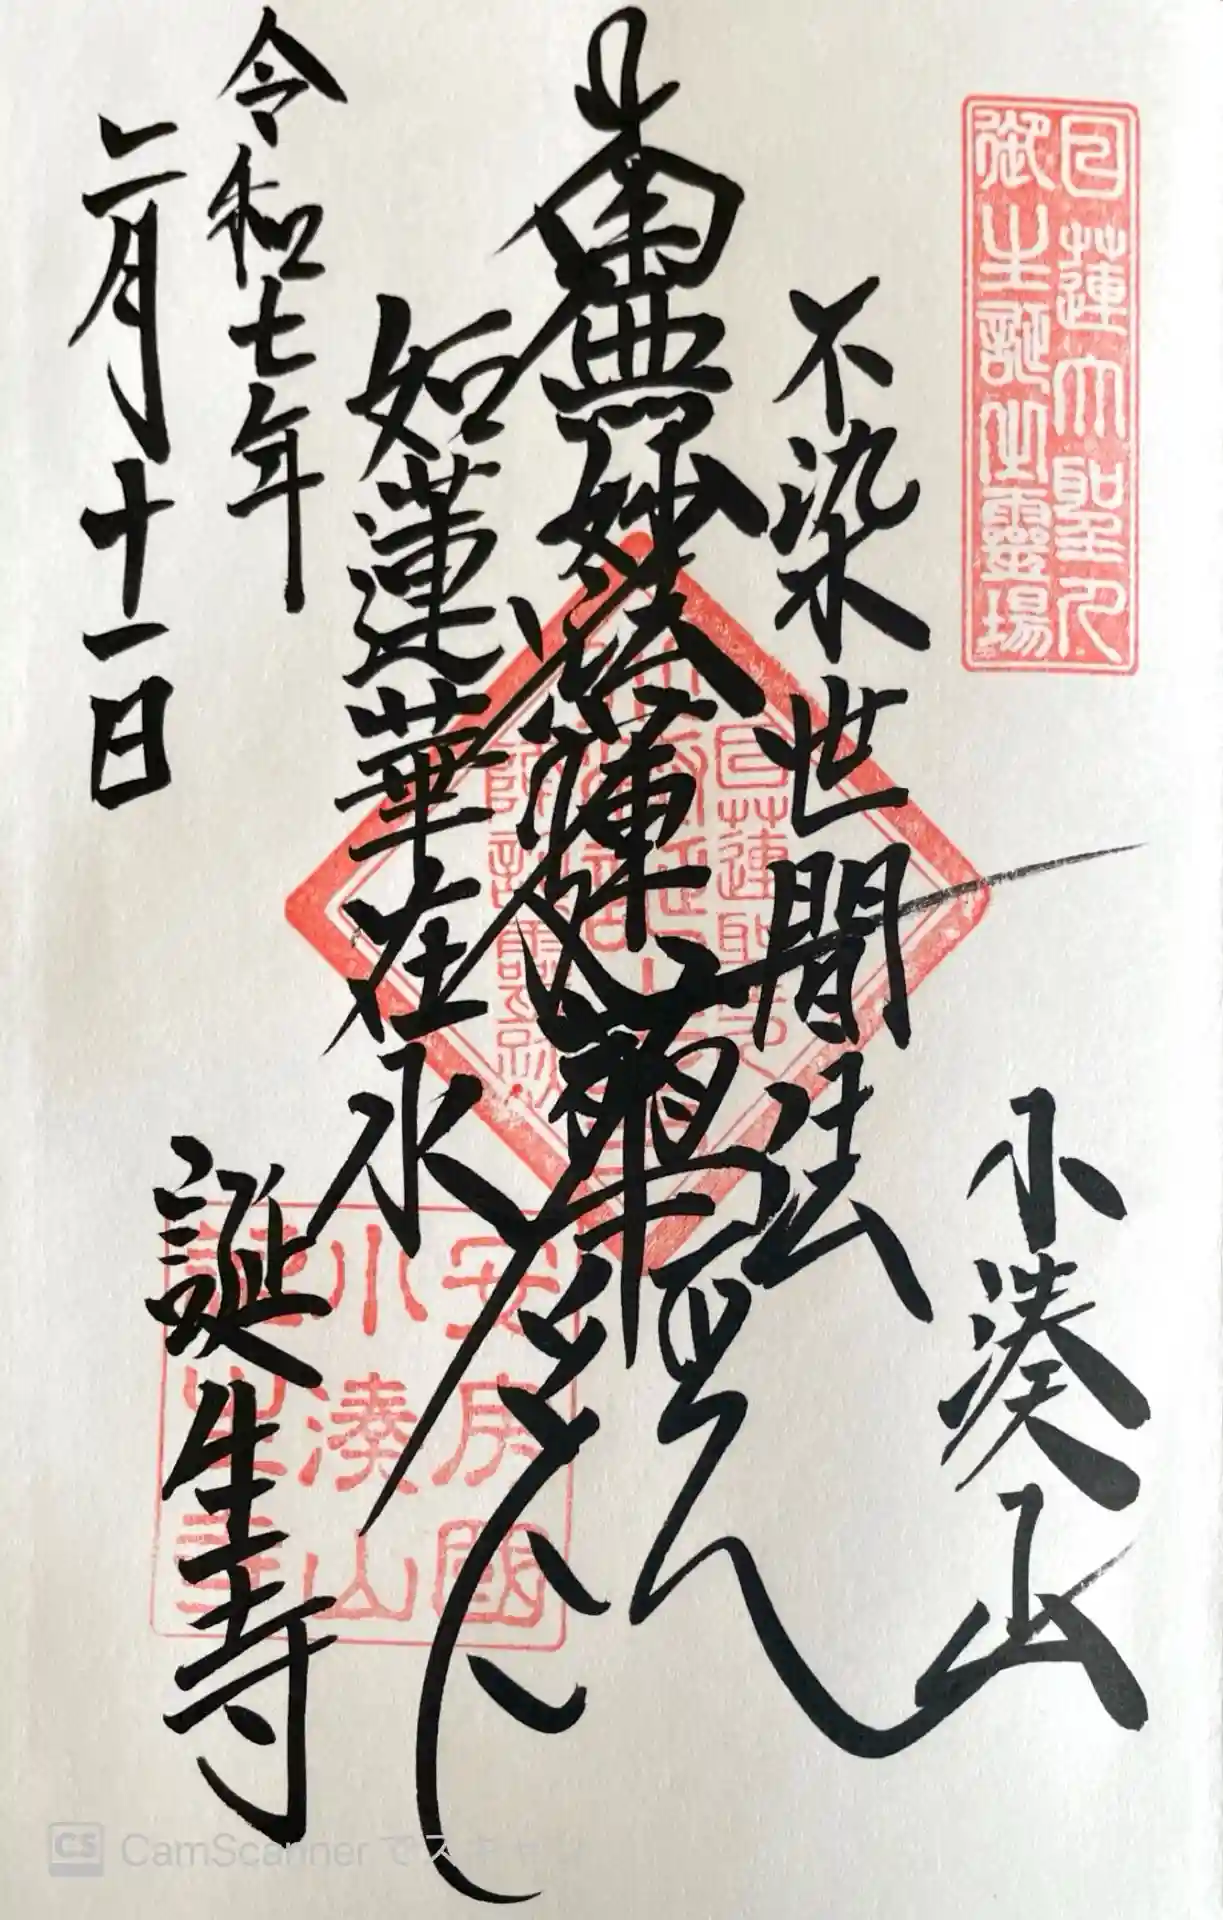 日蓮大聖人
御生誕之霊場
小湊山
不染世間法
南無妙法蓮華経
如蓮華在水
誕生寺
令和七年
二月十一日
安房國
小湊山
誕生寺
CamScanner でスキャン